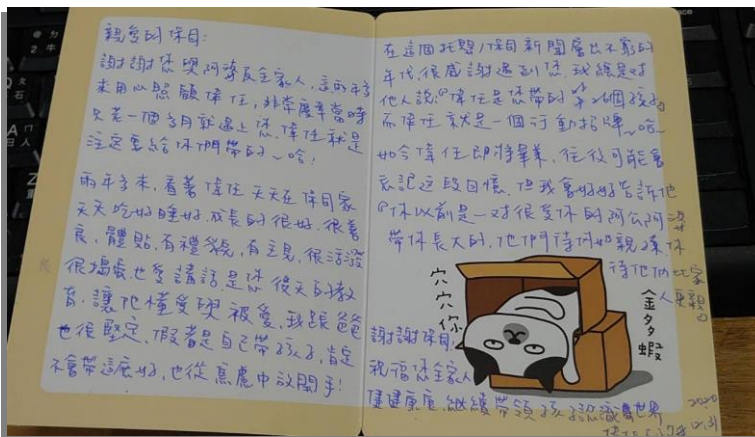 親愛的保母:
謝謝您與阿諱及全家人,這兩年多
來用心照顧偉任,非常慶幸當時
只差一個多月就遇上您,偉任就是
注定要給你們帶的~哈!
兩年多來,看著偉任天天在保母家
天天吃好睡好,成長的很好,很善
良、體貼、有禮貌,有主見,很活潑
很搗蛋也愛講話,是您後天的教
育,讓他懂愛與被愛,我跟爸爸
也很堅定,假若是自己帶孩子,肯定
不會帶這麼好,也從焦慮中放開手!
在這個托嬰/保母新聞層出不窮的
年代,很感謝遇到您,我總是對
他人說:『偉任是您帶的第26個孩子』
而偉任就是一個行動招牌~哈~
如今偉任即將畢業,往後可能會
忘記这段回憶,但我會好好告訴他
『你以前是一對很愛你的阿公阿婆
帶你長大的,他們待你如親孫,你
待他們比家
人更親』
穴穴你
金多蝦
謝謝保母,
祝福您全家人
健健康康,繼續帶領孩子認識世界
2020
12.31